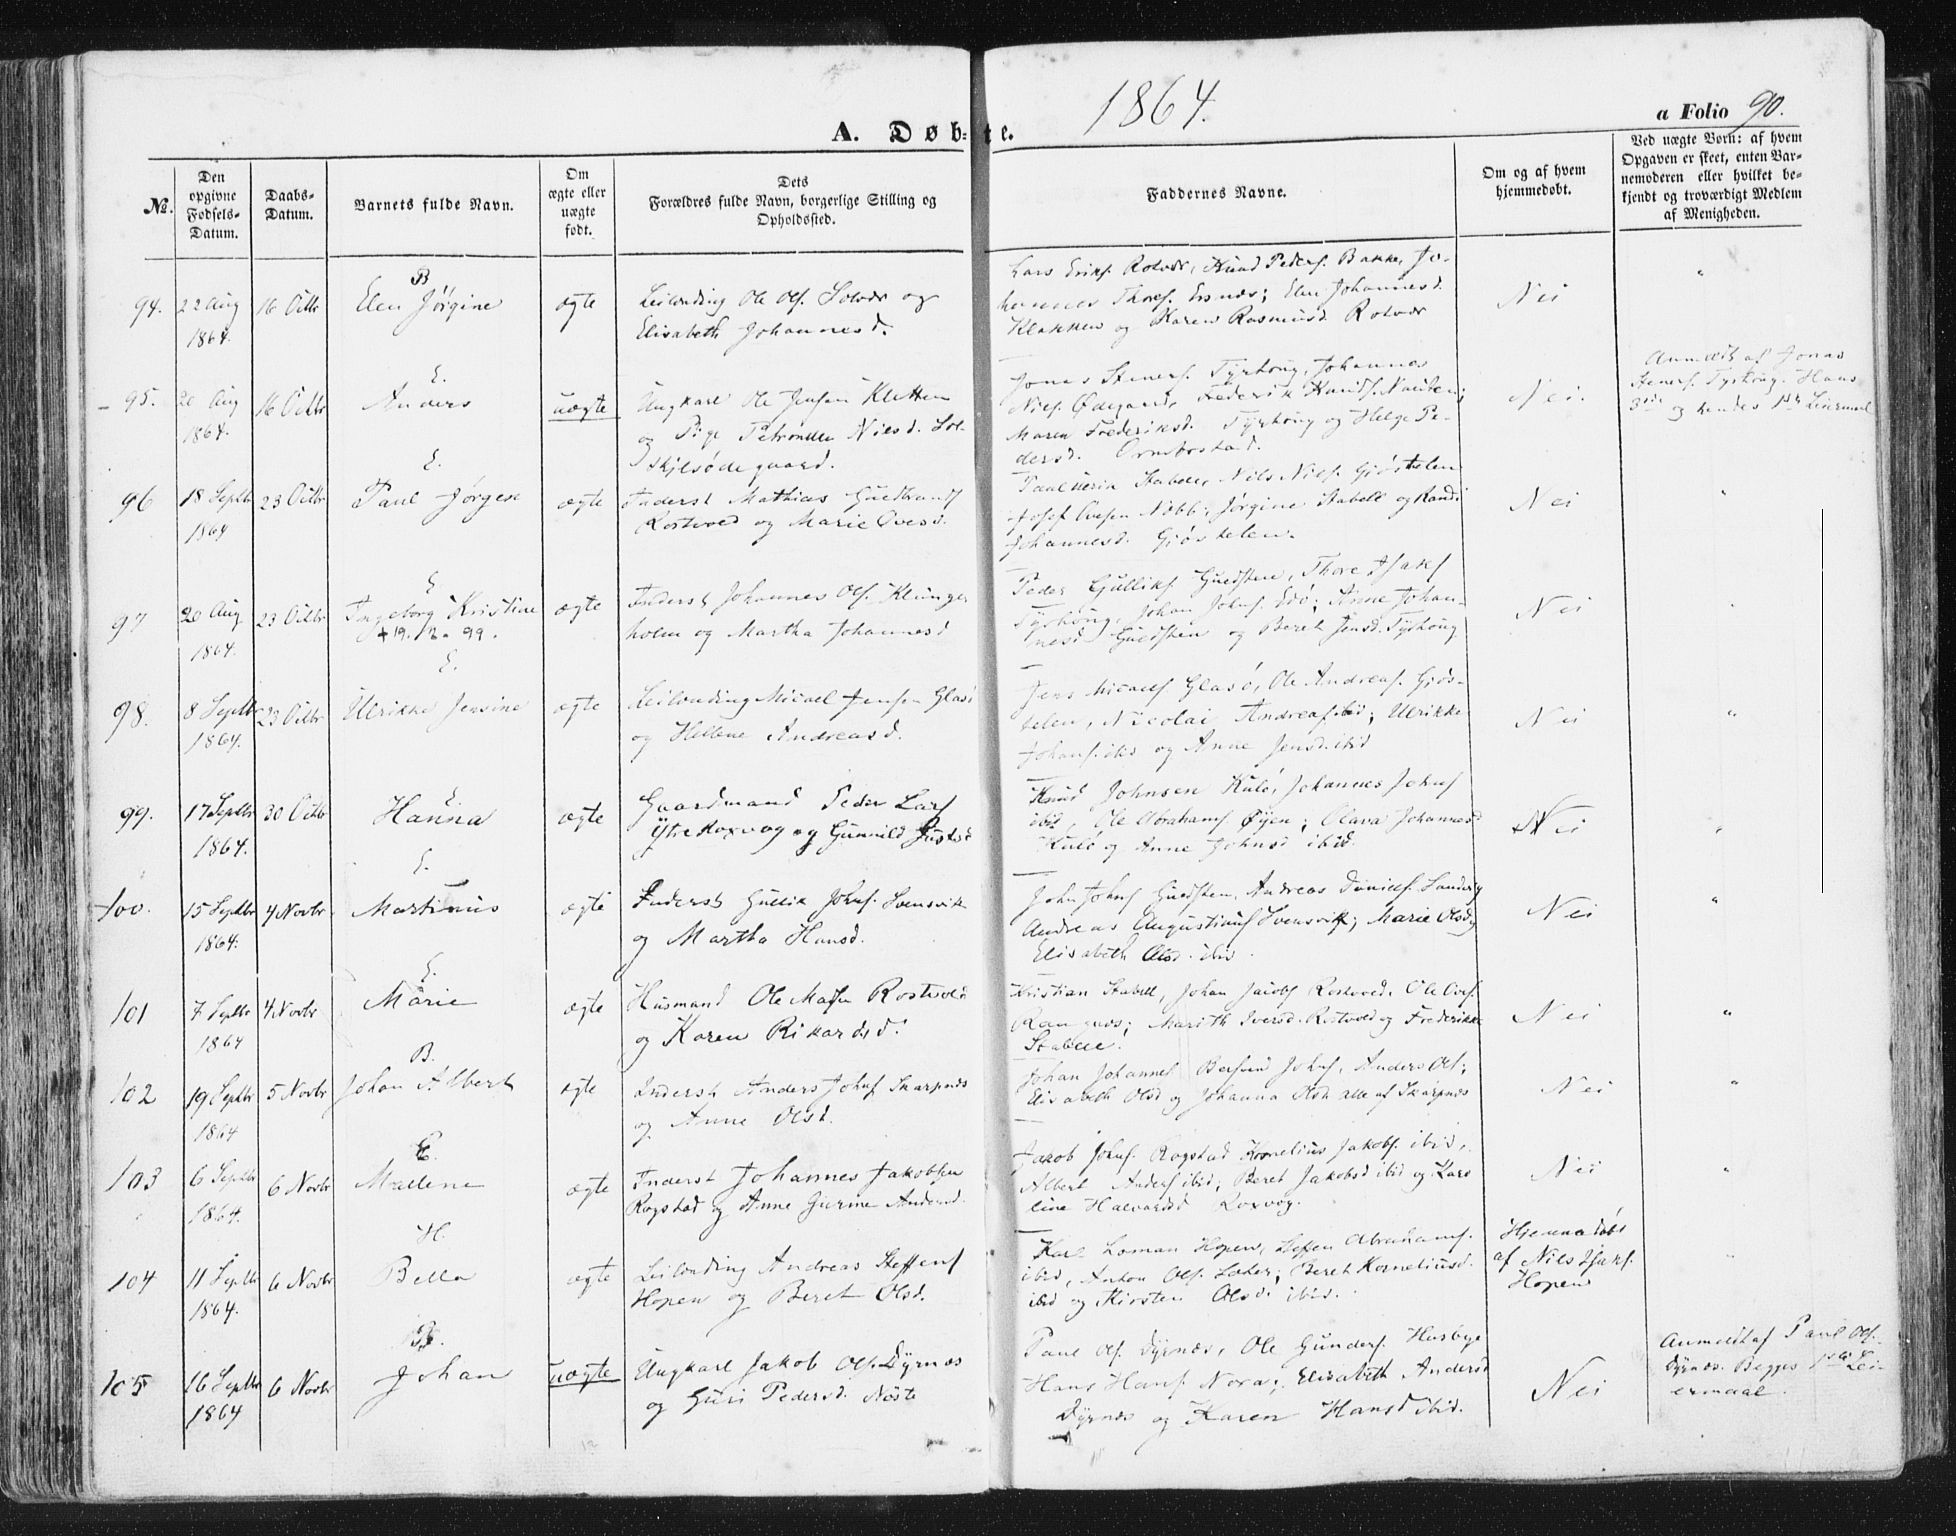 1864.
a Folio 90.
A. Døbte.
No.
Den opgivne Fødsels-Datum.
Daabs-Datum.
Barnets fulde Navn.
Om ægte eller uægte født.
Dets Forældres fulde Navn, borgerlige Stilling og Opholdssted.
Faddernes Navne.
Om og af hvem hjemmedøbt.
Ved uægte Børn: af hvem Opgaven er skeet, enten Barnemoderen eller hvilket bekjendt og troværdigt Medlem af Menigheden.
B
94. 22 Aug 16 Octbr Elen Jørgine ægte Leilænding Ole Ols. Solvær og
1864. Elisabeth Johannesd.
Lars Eriks. Rotvær, Knud Peders. Bakke, Jo-
hannes Thores. Ersnæs; Elen Johannesd.
Klakken og Karen Rasmusd. Rotvær
Nei "
E.
95. 20 Aug 16 Octbr Anders uægte Ungkarl Ole Jensen Kletten
1864. og Pige Petronelle Nielsd. Sol-
skjelsødegaard.
Jonas Steners. Tyrhoug, Johannes
Niels. Ødegaard, Frederik Knuds.
Maren Frederiksd. Tyrhoug og Helge Pe-
dersd. Ormbostad.
Nei.
Anmeldt af Jonas
Steners. Tyrhoug. Hans
3die og hendes 1ste Leiermaal
E.
96 18 Septbr 23 Octbr Paul Jørgen ægte Inderst Mathias Guldbrands
1864 Rostvold og Marie Ovesd.
Stabell, Nils Niels. Gjøstelen
Josef Ovesen Nibb; Jørgine Stabell og Randi
Johannesd. Gjøstelen.
Nei "
E
97 20 Aug 23 Octbr Ingeborg Kristine ægte Inderst Johannes Ols. Klunger
1864. +19.12.99. holm og Martha Johannesd
Peder Gulliks Guldsten, Thore Isaks
Tyrhoug, Johan Johns. Edø; Anne Johan-
nesd Guldsten og Beret Jensd. Tyrhoug
Nei "
E.
98. 8 Septbr 23 Octbr Ulrikke Jensine ægte Leilænding Micael Jensen Glasø
1864. og Hellene Andreasd.
Jens Micaels Glasø, Ole Andreas. Gjøs-
telen, Nicolai Andreas. ibid; Ulrikke
Johans. ibid og Anne Jensd. ibid
Nei "
E
99. 17 Septbr 30 Octb Hanna ægte Gaardmand Peder Lars
1864. Ytre Roxvog og Gunnild Gustad
Knud Johnsen Kulø, Johannes Johns
ibid, Ole Abrahams. Øyen; Olava Johannesd
Kulø og Anne Johnsd ibid.
Nei "
E.
100. 15 Septbr 4 Novbr Martinus ægte Inderst Gullik Johns. Svensvik
1864. og Martha Hansd.
John Johns Guldsten, Andreas Daniels. Sandvig
Andreas Augustinus Svensvik; Marie Olsd og
Elisabeth Olsd. ibid.
Nei "
E.
101 7 Septbr 4 Novbr Marie ægte Husmand Ole Mats. Rostvold
1864 og Karen Rikardsd.
Kristian Stabell, Johan Jacobs Rostvold, Ole Oves.
Ramsnæs; Marith Iversd. Rostvold og Frederikke
Stabell.
Nei "
B.
102 19 Septbr 5 Novbr Johan Albert ægte Inderst Anders Johns Skarpnæs
1864 og Anne Olsd.
Johan Johannes Johns, Anders Ols;
Elisabeth Olsd og Johanna Olsd alle af Skarpnæs
Nei "
E.
103 6 Septbr 6 Novbr Mallene ægte Inderst Johannes Jakobsen
1864. Rogstad og Anne Gurine Andersd.
Jakob Johns. Rogstad Kornelius Jakobs. ibid,
Albert Anders ibid; Beret Jakobsd ibid og Karo
line Halvardsd Roxvog.
Nei "
H.
104 11 Septbr 6 Novbr Bella ægte Leilænding Andreas Steffens
1864. Hopen og Beret Olsd.
Karl Loman Hopen, Steffen Abrahams.
ibid, Anton Ols. Sæter; Beret Korneliusd.
ibid og Kirsten Olsd. ibid.
Hjemmedøbt
af Nils Isaks.
Hopen
"
B.
105 16 Septbr 6 Novbr Johan uægte Ungkarl Jakob Ols. Dyrnæs
1864 og Guri Pedersd. Nøste
Paul Ols. Dyrnæs, Ole Gunders. Husbye
Hans Hans. Nora; Elisabeth Andersd
Dyrnæs og Karen Hansd ibid.
Nei
Anmeldt af Paul Ols.
Dyrnæs. Begges 1ste Lei-
ermaal.